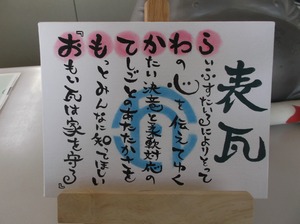 表瓦
らいふすたいるによりそって
わの心を伝えてゆく
かたい決意と柔軟対応の
てしごとのあたたかさを
もっとみんなに知ってほしい
『おもい瓦は家を守る』